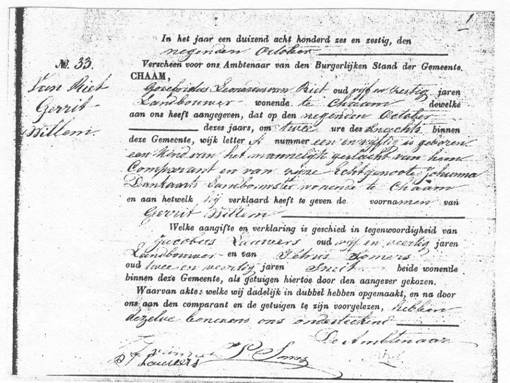 1
In het jaar een duizend acht honderd zes en zestig, den
negenden October
No. 33. Verscheen voor ons Ambtenaar van den Burgerlijken Stand der Gemeente
Van Riet CHAAM,
Gerrit Godefridus Leonardus van Riet oud vijf en dertig jaren
Willem Landbouwer wonende te Chaam dewelke
aan ons heeft aangegeven, dat op den negenden October
dezes jaars, om twee ure des binnen
deze Gemeente, wijk letter A nummer een en vijftig is geboren
een Kind van het mannelijk geslacht van hem
Comparant en van zijne Echtgenoote Johanna
wonende te Chaam
en aan hetwelk hij verklaard heeft te geven de voornamen van
Gerrit Willem
Welke aangifte en verklaring is geschied in tegenwoordigheid van
Jacobus Lauwers oud vijf en veertig jaren
Landbouwer en van Petrus Somers
oud twee en veertig jaren Smit beide wonende
binnen deze Gemeente, als getuigen hiertoe door den aangever gekozen.
Waarvan akte: welke wij dadelijk in dubbel hebben opgemaakt, en na door
ons aan den comparant en de getuigen te zijn voorgelezen, hebben
dezelve benevens ons onderteekend
De Ambtenaar
J Lauwers P Somers